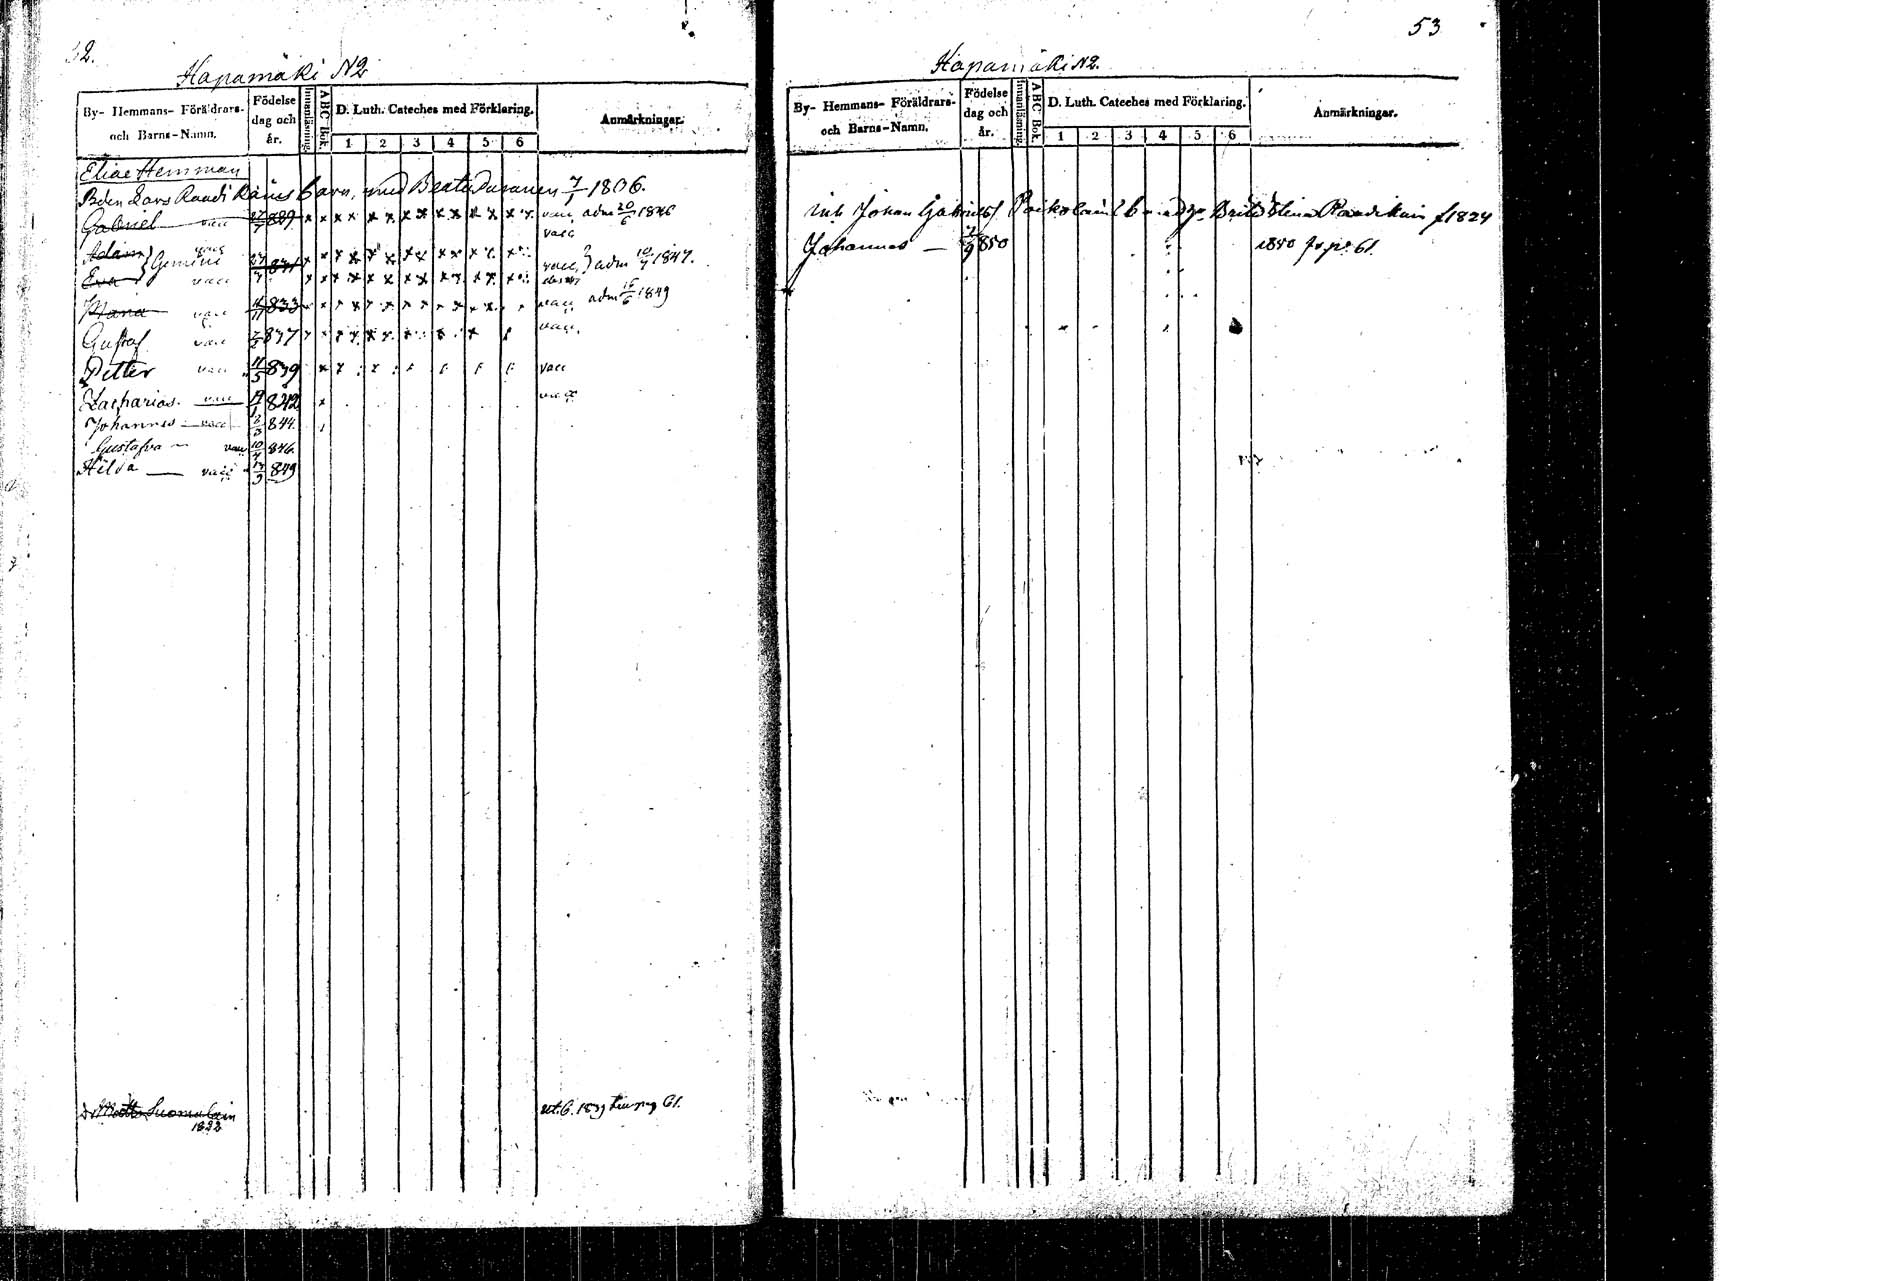 52.
Hapamäki N2
By- Hemmans- Föräldrars- och Barns-Namn.
Födelse dag och år.
Innanläsning
ABC Bok
D. Luth. Cateches med Förklaring.
1 2 3 4 5 6
Anmärkningar.
Eliae Hemman
Bden Lars Raudikains barn, med Beata 7/1 1806.
Gabriel vacc 829 vacc, adm 20/6 1846
vacc
Adam vacc
Gemini 27/7 831 vacc } adm 10/7 1847.
Eva vacc
Maria vacc 833 vacc adm 15/6 1849
Gustaf vacc 837 vacc.
Petter vacc 11/5 839 vacc
Zacharias vacc 19/1 842 vacc
Johannes vacc 2/3 844
Gustafva vacc 10/4 846
Hilda vacc 14/9 849
Suomalain
1822
ut. 6. 1839 pag 61.
53
Hapamäki N2.
By- Hemmans- Föräldrars- och Barns-Namn.
Födelse dag och år.
Innanläsning
ABC Bok.
D. Luth. Cateches med Förklaring.
1 2 3 4 5 6
Anmärkningar.
Inh Johan Gabriels Poikolain b med Brita Stina Raudikain f 1824
Johannes 9 850 1850 fr pg 61